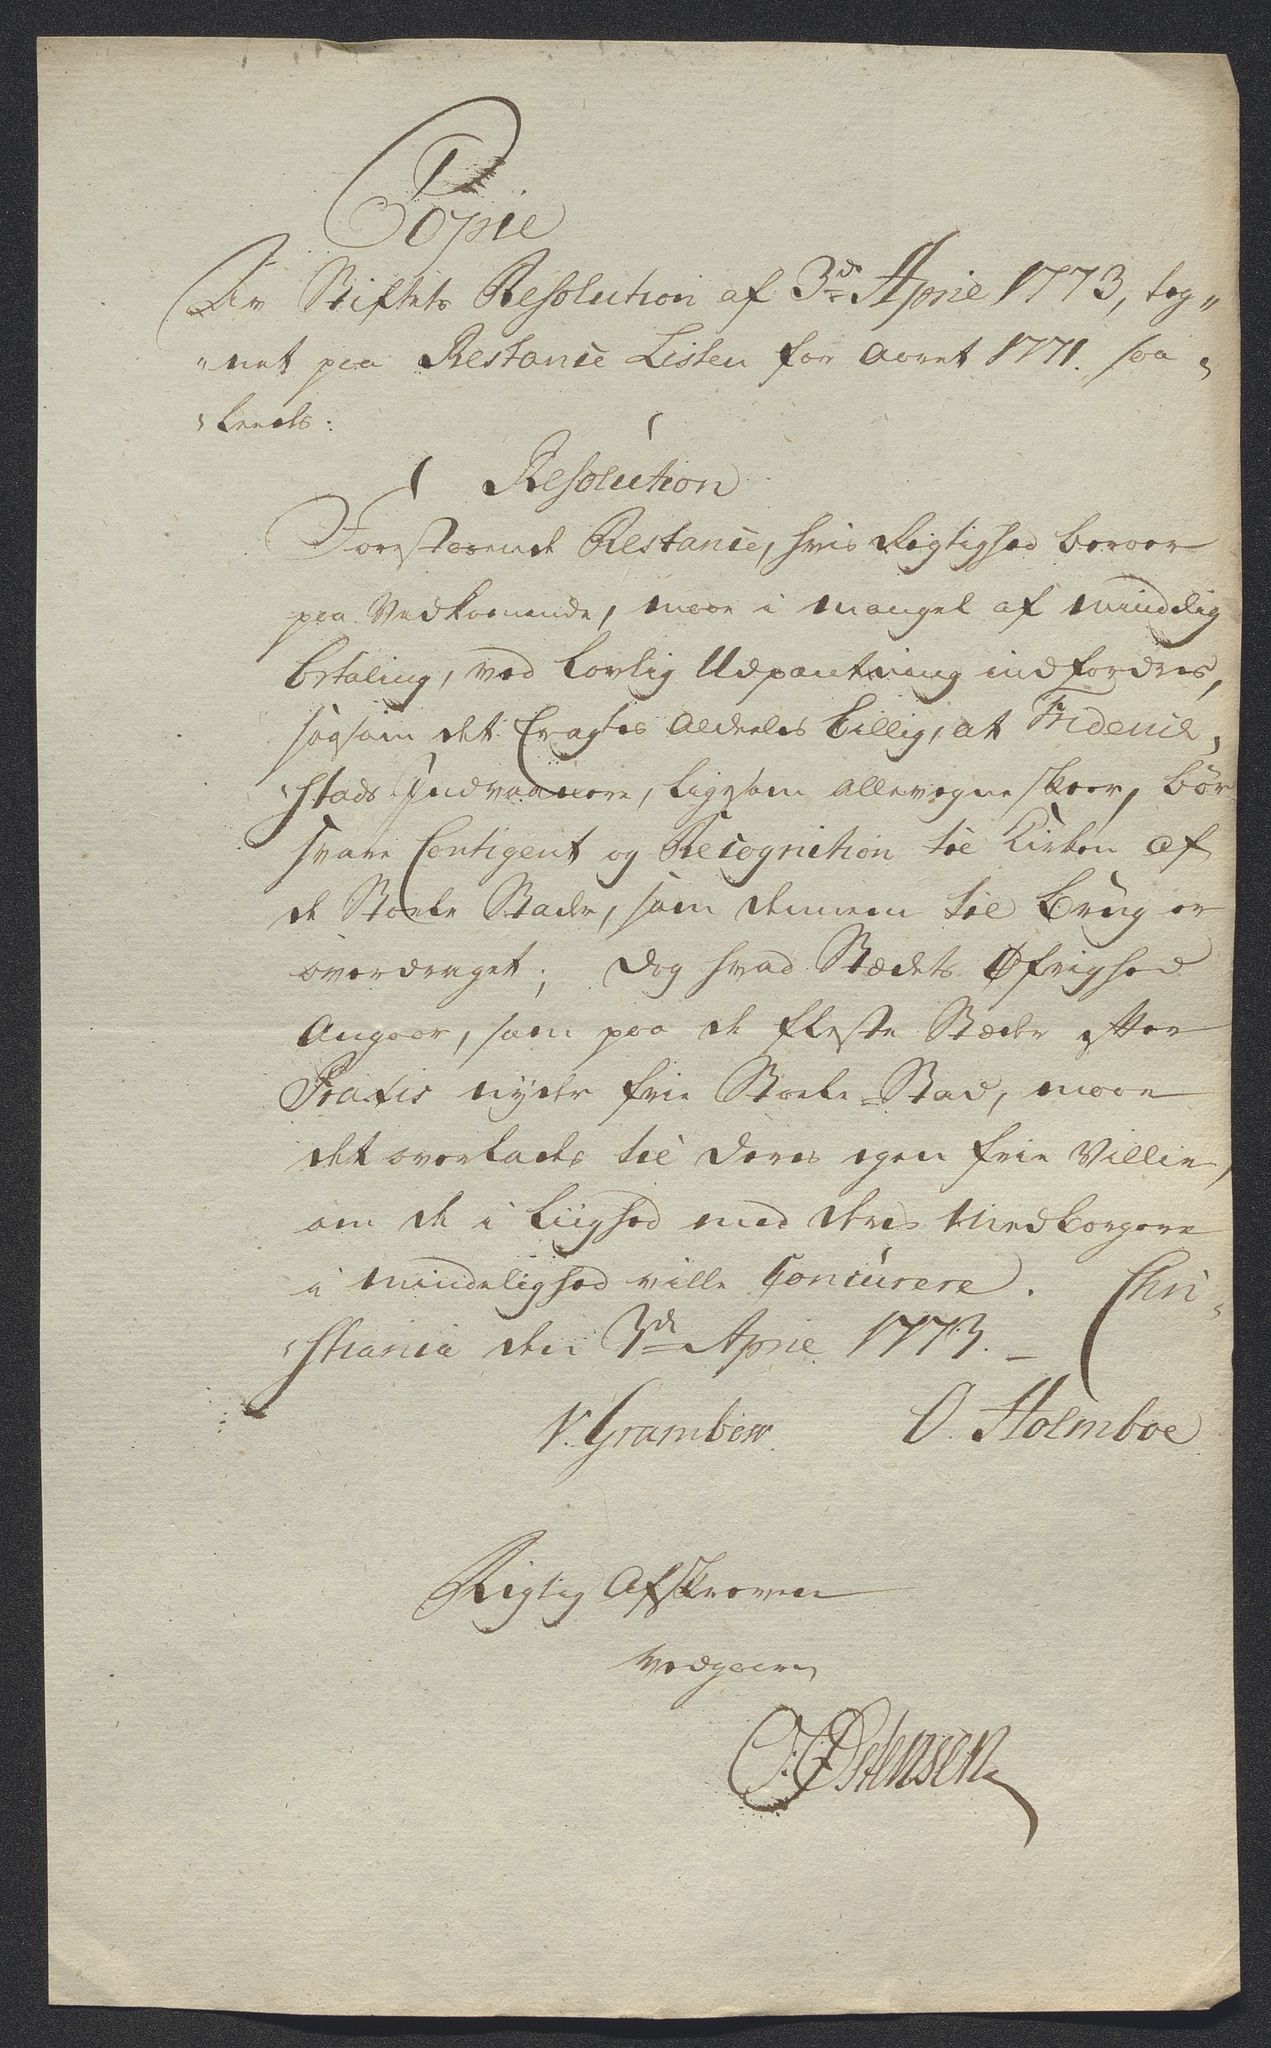 Copie
Av Stiftets Resolution af 3de April 1773, teg„
„net paa Restance Listen for Aaret 1771. saa„
„leeds:
Resolution
Forestaaende Restance, hvis Rigtighed beroer
paa Vedkommende, maae i mangel af mindelig
betaling, ved lovlig Udpantning indfordres,
saasom det Eragtes Aldeeles billig, at Friderich„
„stads Indvaanere, ligesom allevegne skeer, bør
svare Contigent og Recognition til Kirken af
de Stoele Stader, som dennem til brug er
overdraget; dog hvad Stædets Øfrighed
Angaar, som paa de fleste Stæder efter
Praxis nyder frie Stoele-Stad, maae
det overlades til deres egen frie Villie,
om de i Liighed med deres Medborgere
i mindelighed ville Concurere. Chri„
„stiania den 3de April 1773.
V. Grambow O. Holmboe
Rigtig Afskreven
Vedgaaer
Østensen